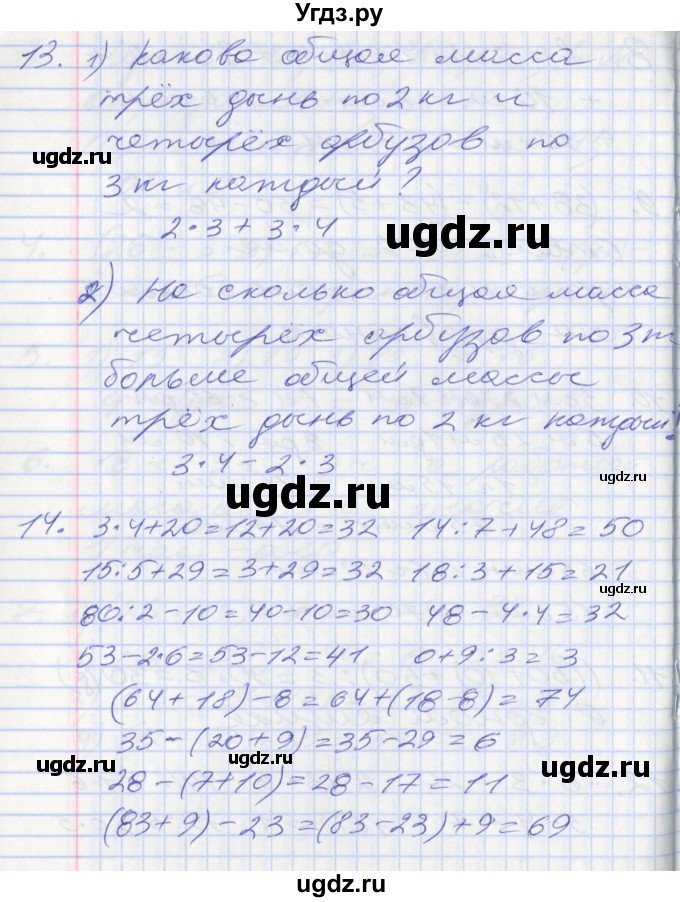 Угдз.ру
13. 1) Какова общая масса
трёх дынь по 2 кг и
четырёх арбузов по
3 кг каждый?
2·3+3·4
2) На сколько общая масса
четырёх арбузов по 3
больше общей массы
трёх дынь по 2 кг каждый?
3·4-2·3
14. 3·4+20=12+20=32 14:7+48=50
15:5+29=3+29=32 18:3+15=21
80:2-10=40-10=30 48-4·4=32
53-2·6=53-12=41 0+9:3=3
(64+18)-8=64+(18-8)=74
35-(20+9)=35-29=6
28-(7+10)=28-17=11
(83+9)-23=(83-23)+9=69
ugdz.ru
ugdz.ru
ugdz.ru
ugdz.ru
ugdz.ru
ugdz.ru
ugdz.ru
ugdz.ru
ugdz.ru
ugdz.ru
ugdz.ru